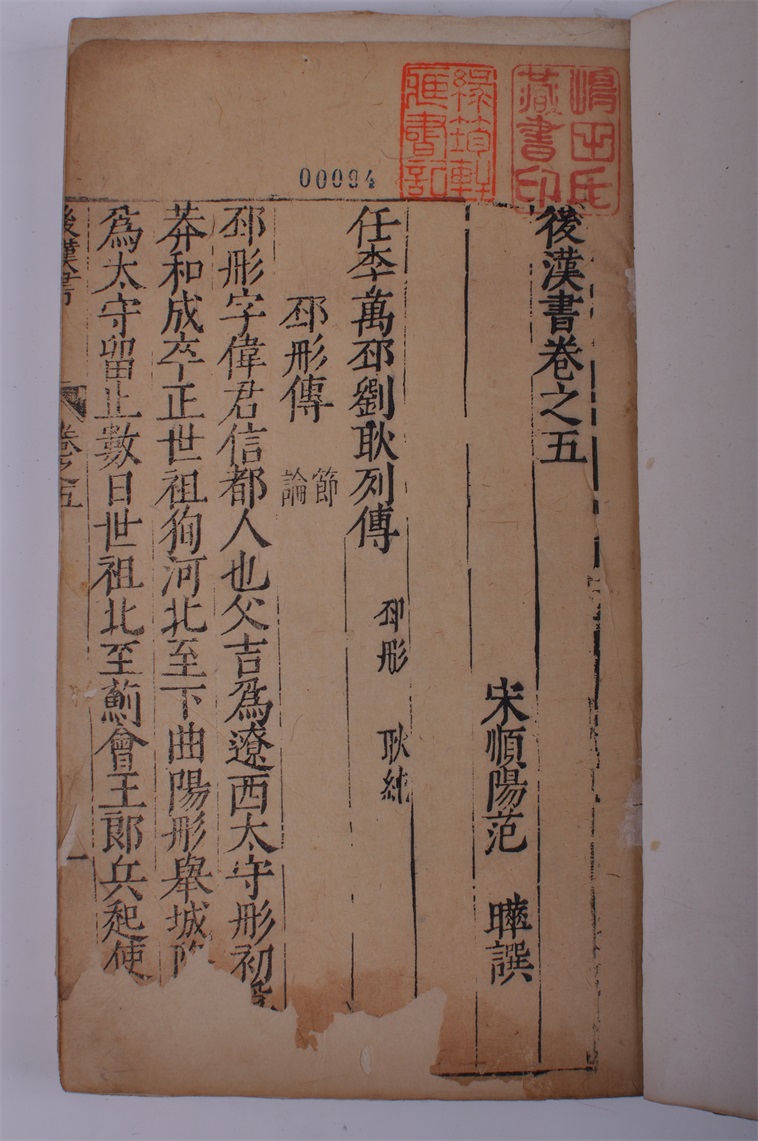 嶋田氏
藏書印
綠筠軒
書記
00094
後漢書卷之五
宋順陽范 曄譔
任李萬邳劉耿列傳 邳彤 耿純
邳彤傳 節論
邳彤字偉君信都人也父吉爲遼西太守彤初爲
莽和成卒正世祖狥河北至下曲陽彤舉城降
爲太守留止數日世祖北至薊會王郎兵起使
後漢書 卷之五 一